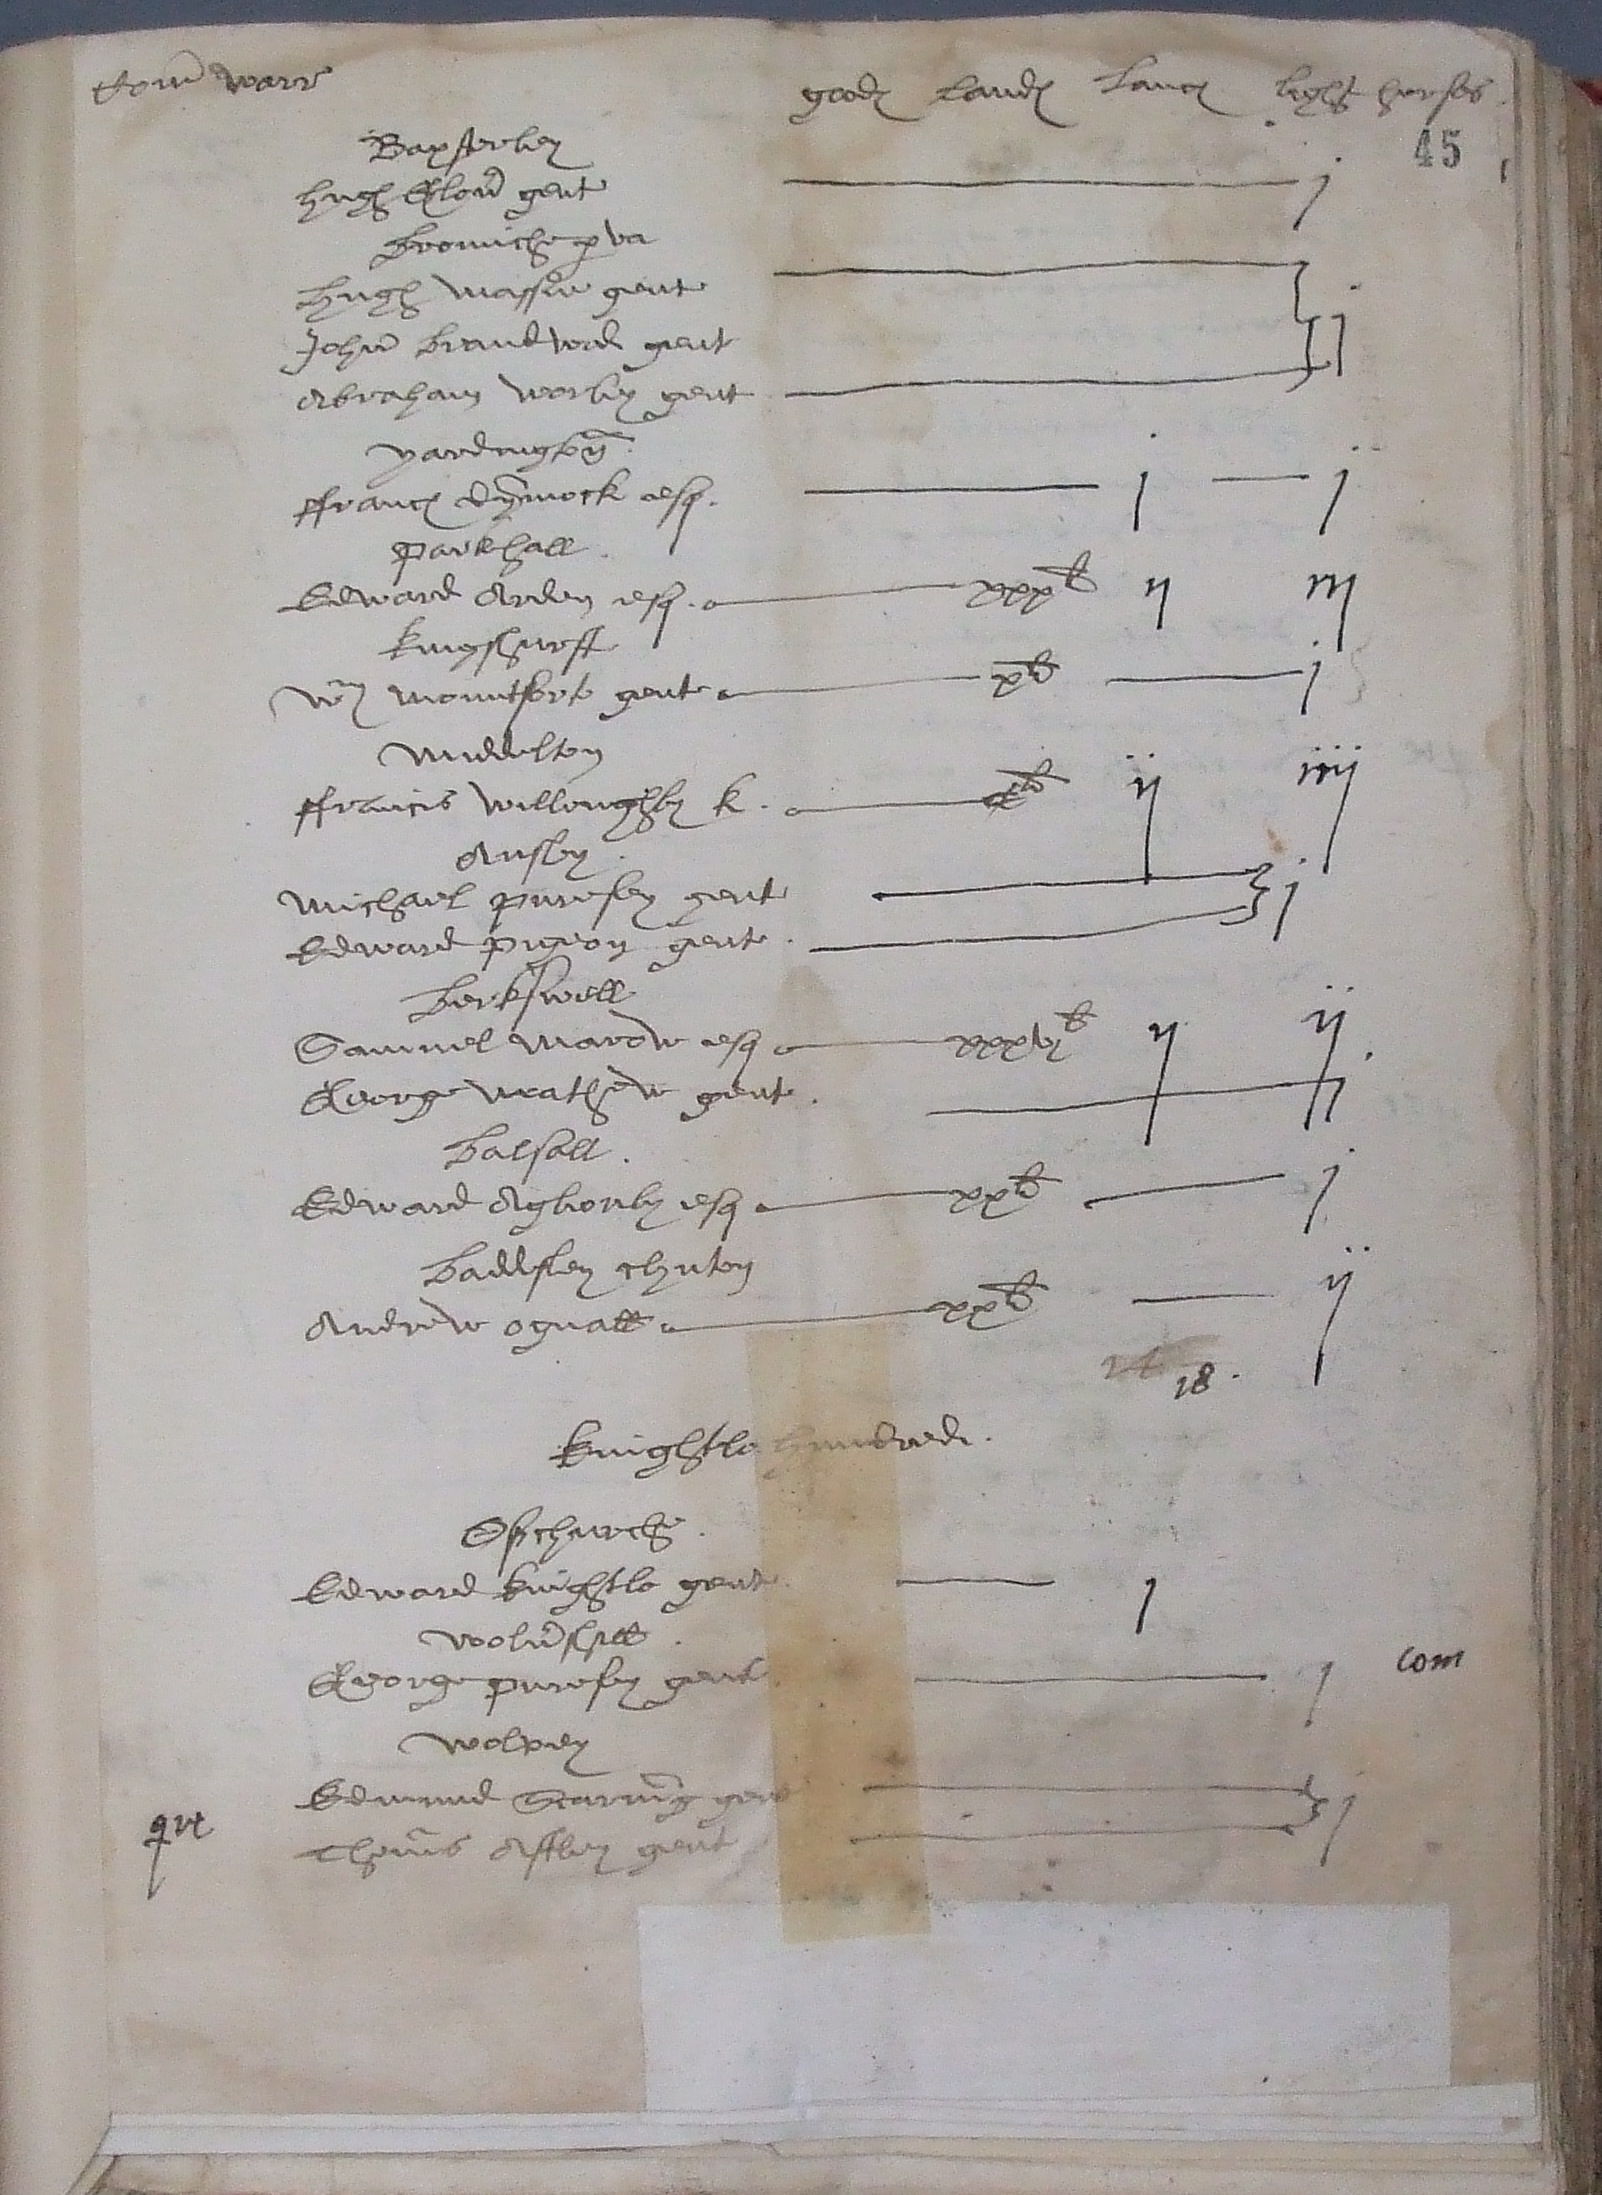 Com̃ warr goodꝭ landꝭ lancꝭ light horses
45
Baxsterley
hugh Glou͂ gent j
bromiche ꝑva
hugh Massie gent
John brandwod gent j
Abraham worley gent
yardington͂
ffrancꝭ dy͂mock esq. j j
parkhall
Edward Arden esq. xxxˡⁱ ij iij
kingshurst
Wᵐ Mountforte gent xˡⁱ j
Middelton
ffrancis willoughby k. cˡⁱ ij iiij
Ansley
Michael purefey gent
Edward pigeon gent. j
berkswell
Samuel Marow esq xxxvjˡⁱ ij ij
George Mathew gent. j
balsall.
Edward Aglionby esq xxˡⁱ j
baddesley clynton
Andrew ognall xxˡⁱ ij
18.
knightlo hundred.
Ofchurche.
Edward knightlo gent. j
wolu͂shill.
George purefey gent. j com
wolvey
Edmund Starin͂g gent
Thom͂s Astley gent j